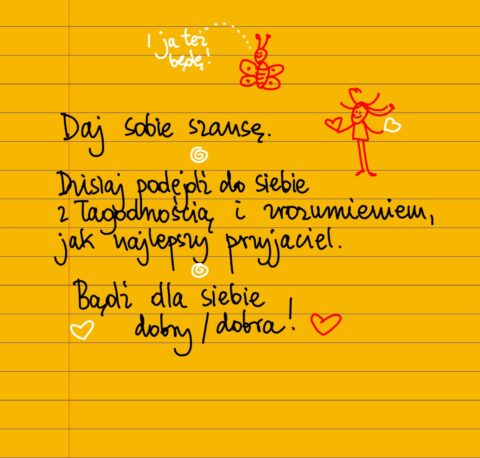 I ja też
będę!
Daj sobie szansę.
Dzisiaj podejdź do siebie
z łagodnością i zrozumieniem,
jak najlepszy przyjaciel.
Bądź dla siebie
dobry/dobra!